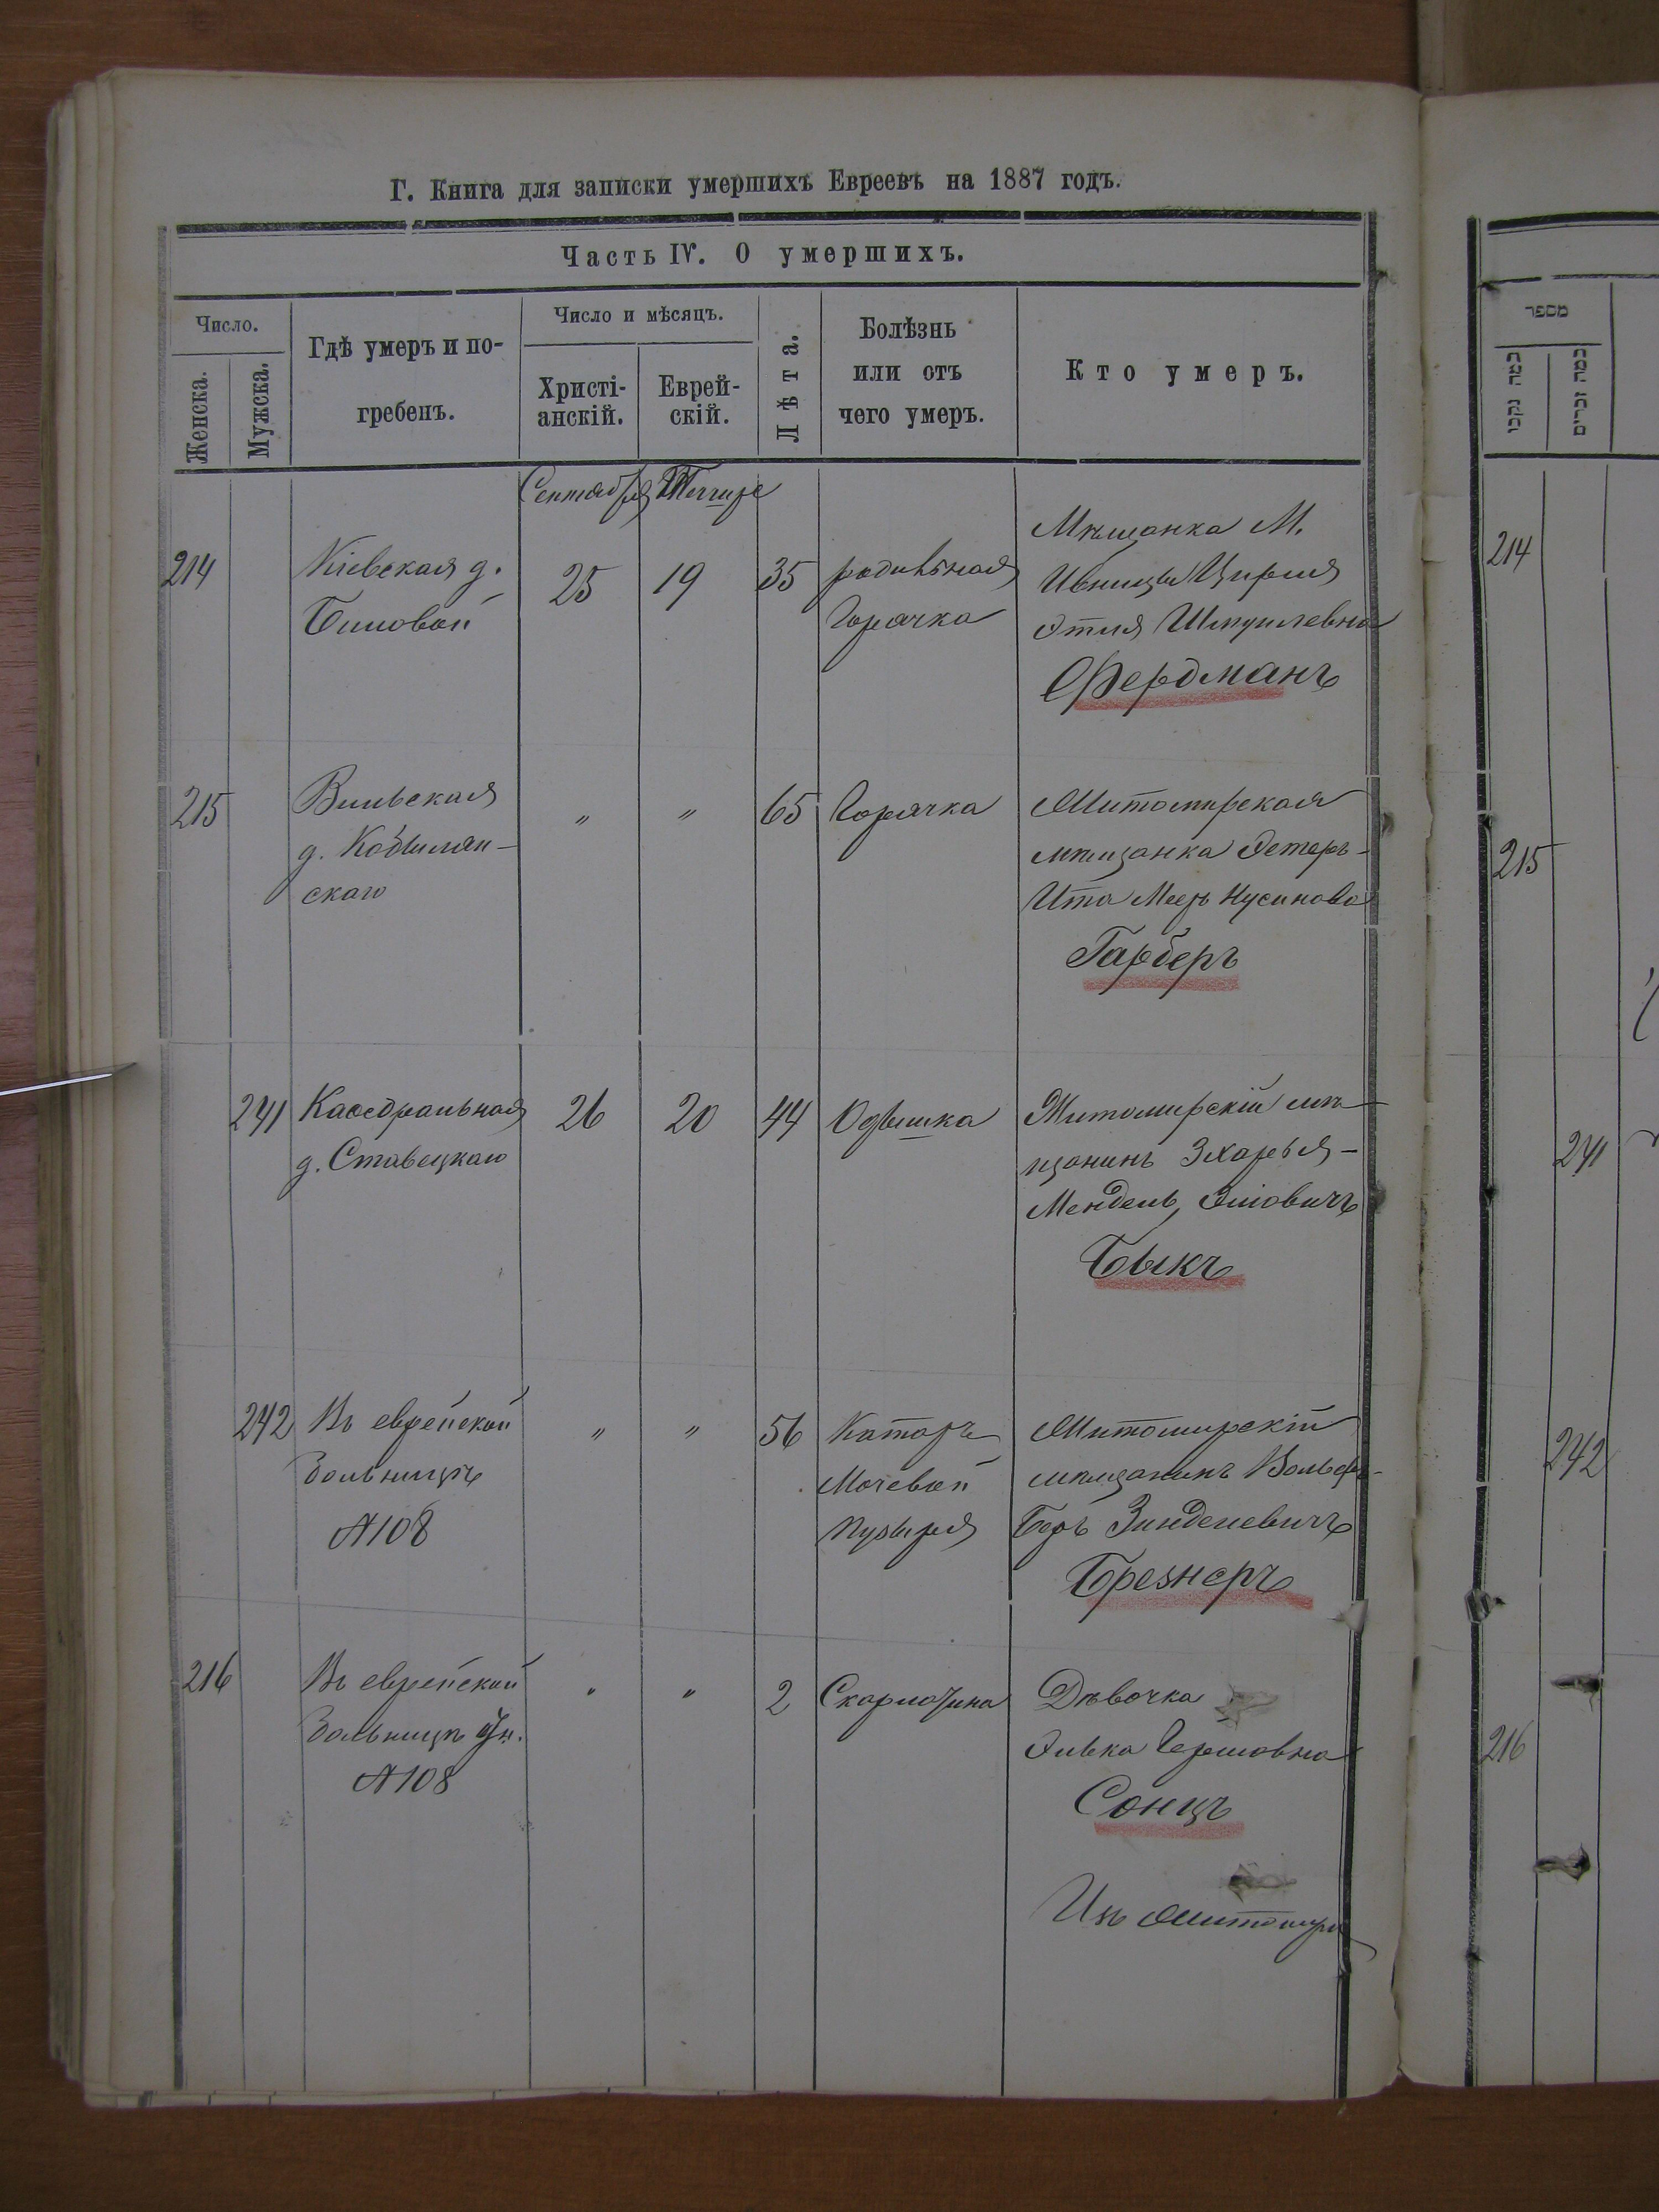 Г. Книга для записки умершихъ Евреевъ на 1887 годъ.
Часть IV. О умершихъ.
Число.
Женска.
Мужска.
Гдѣ умеръ и по-
гребенъ.
Число и мѣсяцъ.
Христі-
анскій.
Еврей-
скій.
Лѣта.
Болѣзнь
или отъ
чего умеръ.
Кто умеръ.
Сентября
214
Кіевская д.
25
19
35
родильная
горячка
Мѣщанка М.
Ивницы Цирля
Этля Шмуилевна
Фердманъ
215
Вильская
д. Кобылян-
скаго
"
"
65
Горячка
Житомирская
мѣщанка Эстеръ-
Ита Меер Нусинова
Гарберъ
241
Каѳедральная
д. Ставецкаго
26
20
44
Одышка
Житомирскій мѣ-
щанинъ Зхарья-
Мендель
Быкъ
242
Въ еврейской
больницѣ
№108
"
"
56
Катаръ
Мочевой
пузыря
Житомирскій
мѣщанинъ Вольфъ-
Беръ Зинделевичъ
Брезнеръ
216
Въ еврейской
больницѣ
№108
"
"
2
Скарлатина
Дѣвочка
Гершовна
Сонцъ
Изъ Житомира
מספר
כמה נקבו
כמה זכרים
214
215
241
242
216